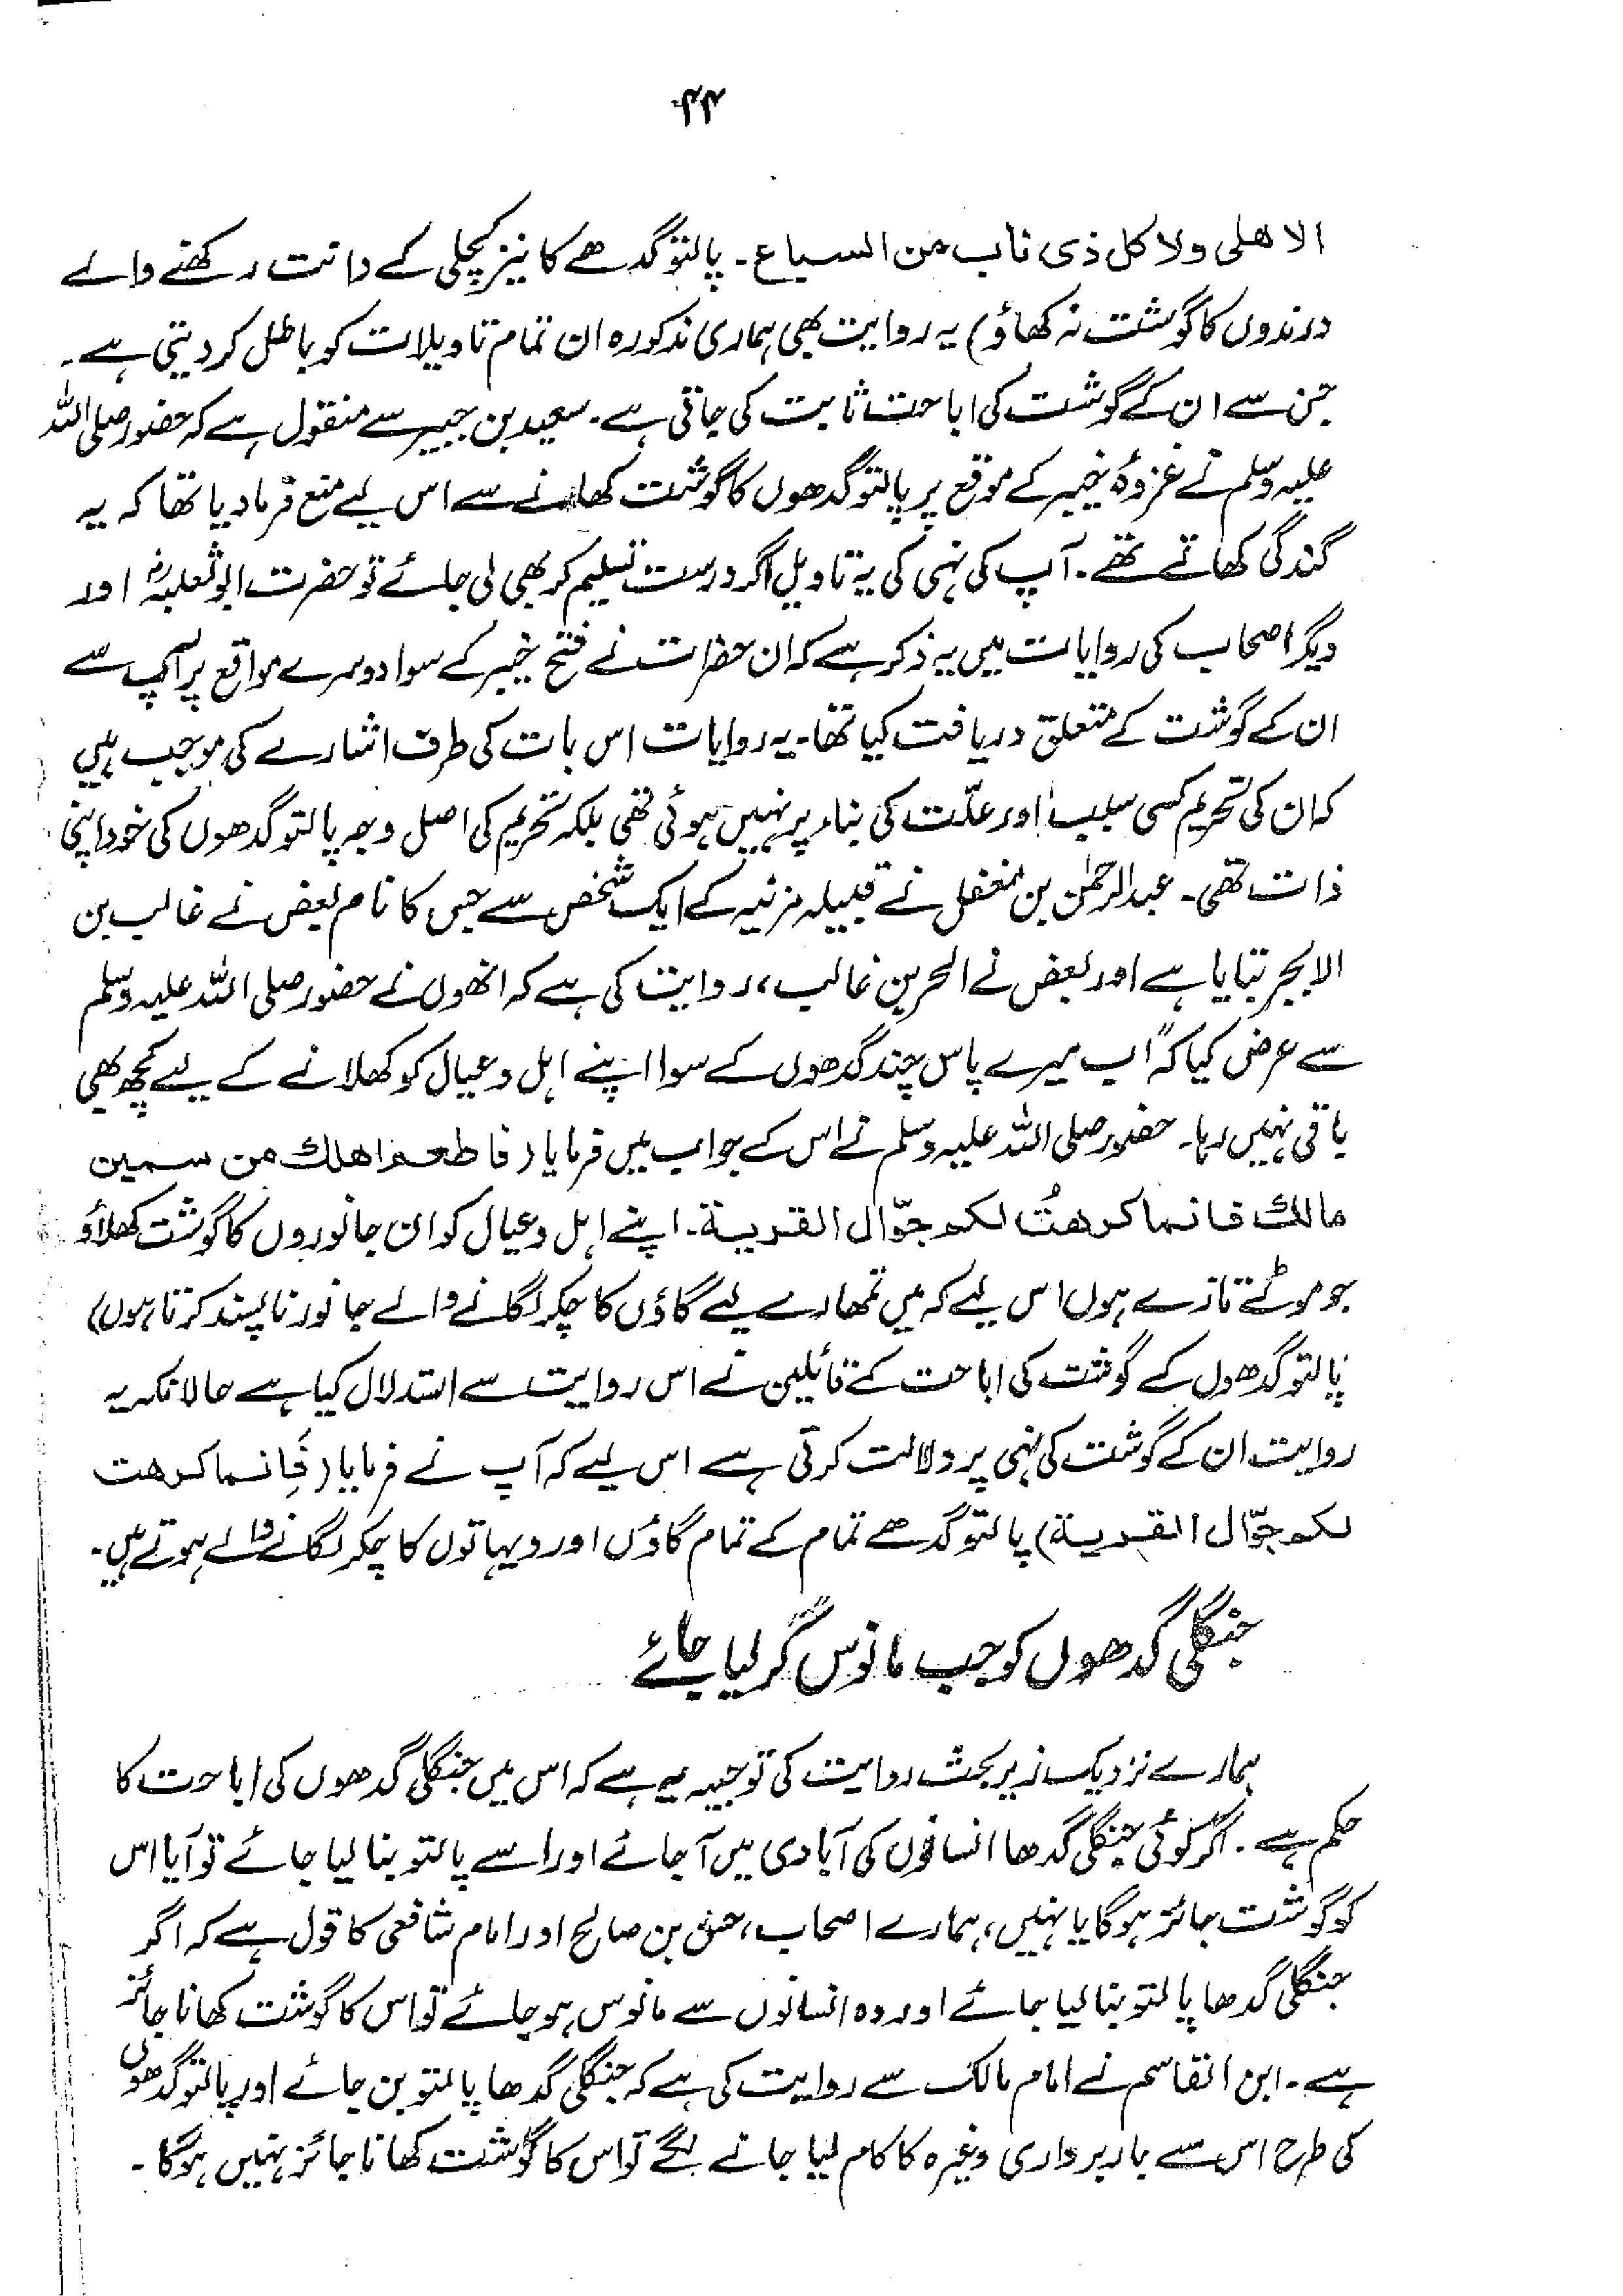 ۴۴
الاهلی ولا کل ذی ناب من السباع۔ پالتو گدھے کا نیز کچلی کے دانت رکھنے والے
درندوں کا گوشت نہ کھاؤ) یہ روایت بھی ہماری مذکورہ ان تمام تاویلات کو باطل کر دیتی ہے۔
جن سے ان کے گوشت کی اباحت ثابت کی جاتی ہے۔ سعید بن جبیر سے منقول ہے کہ حضور صلی اللہ
علیہ وسلم نے غزوۂ خیبر کے موقع پر پالتو گدھوں کا گوشت کھانے سے اس لیے منع فرما دیا تھا کہ یہ
گندگی کھاتے تھے۔ آپ کی نہی کی یہ تاویل اگر درست تسلیم کر بھی لی جائے تو حضرت ابو ثعلبہؓ اور
دیگر اصحاب کی روایات میں یہ ذکر ہے کہ ان حضرات نے فتح خیبر کے سوا دوسرے مواقع پر آپ سے
ان کے گوشت کے متعلق دریافت کیا تھا۔ یہ روایات اس بات کی طرف اشارے کی موجب ہیں
کہ ان کی تحریم کسی سبب اور علّت کی بناء پر نہیں ہوئی تھی بلکہ تحریم کی اصل وجہ پالتو گدھوں کی خود اپنی
ذات تھی۔ عبدالرحمٰن بن مغفل نے قبیلہ مزنیہ کے ایک شخص سے جس کا نام بعض نے غالب بن
الابجر بتایا ہے اور بعض نے الحر بن غالب، روایت کی ہے کہ انھوں نے حضور صلی اللہ علیہ وسلم
سے عرض کیا کہ "اب میرے پاس چند گدھوں کے سوا اپنے اہل و عیال کو کھلانے کے لیے کچھ بھی
باقی نہیں رہا۔ حضور صلی اللہ علیہ وسلم نے اس کے جواب میں فرمایا (فاطعم اهلك من سمین
مالك فانما كرهتُ لكم جوّال القریة۔ اپنے اہل و عیال کو ان جانوروں کا گوشت کھلاؤ
جو موٹے تازے ہوں اس لیے کہ میں تمھارے لیے گاؤں کا چکر لگانے والے جانور ناپسند کرتا ہوں)
پالتو گدھوں کے گوشت کی اباحت کے قائلین نے اس روایت سے استدلال کیا ہے حالانکہ یہ
روایت ان کے گوشت کی نہی پر دلالت کرتی ہے اس لیے کہ آپ نے فرمایا (فَانما كرهت
لكم جوّال القریة) پالتو گدھے تمام کے تمام گاؤں اور دیہاتوں کا چکر لگانے والے ہوتے ہیں۔
جنگلی گدھوں کو جب مانوس کر لیا جائے
ہمارے نزدیک زیر بحث روایت کی توجیہہ یہ ہے کہ اس میں جنگلی گدھوں کی اباحت کا
حکم ہے۔ اگر کوئی جنگلی گدھا انسانوں کی آبادی میں آ جائے اور اسے پالتو بنا لیا جائے تو آیا اس
کو گوشت جائز ہوگا یا نہیں، ہمارے اصحاب، حسن بن صالح اور امام شافعی کا قول ہے کہ اگر
جنگلی گدھا پالتو بنا لیا جائے اور وہ انسانوں سے مانوس ہو جائے تو اس کا گوشت کھانا جائز
ہے۔ ابن القاسم نے امام مالک سے روایت کی ہے کہ جنگلی گدھا پالتو بن جائے اور پالتو گدھوں
کی طرح اس سے باربرداری وغیرہ کا کام لیا جانے لگے تو اس کا گوشت کھانا جائز نہیں ہوگا۔